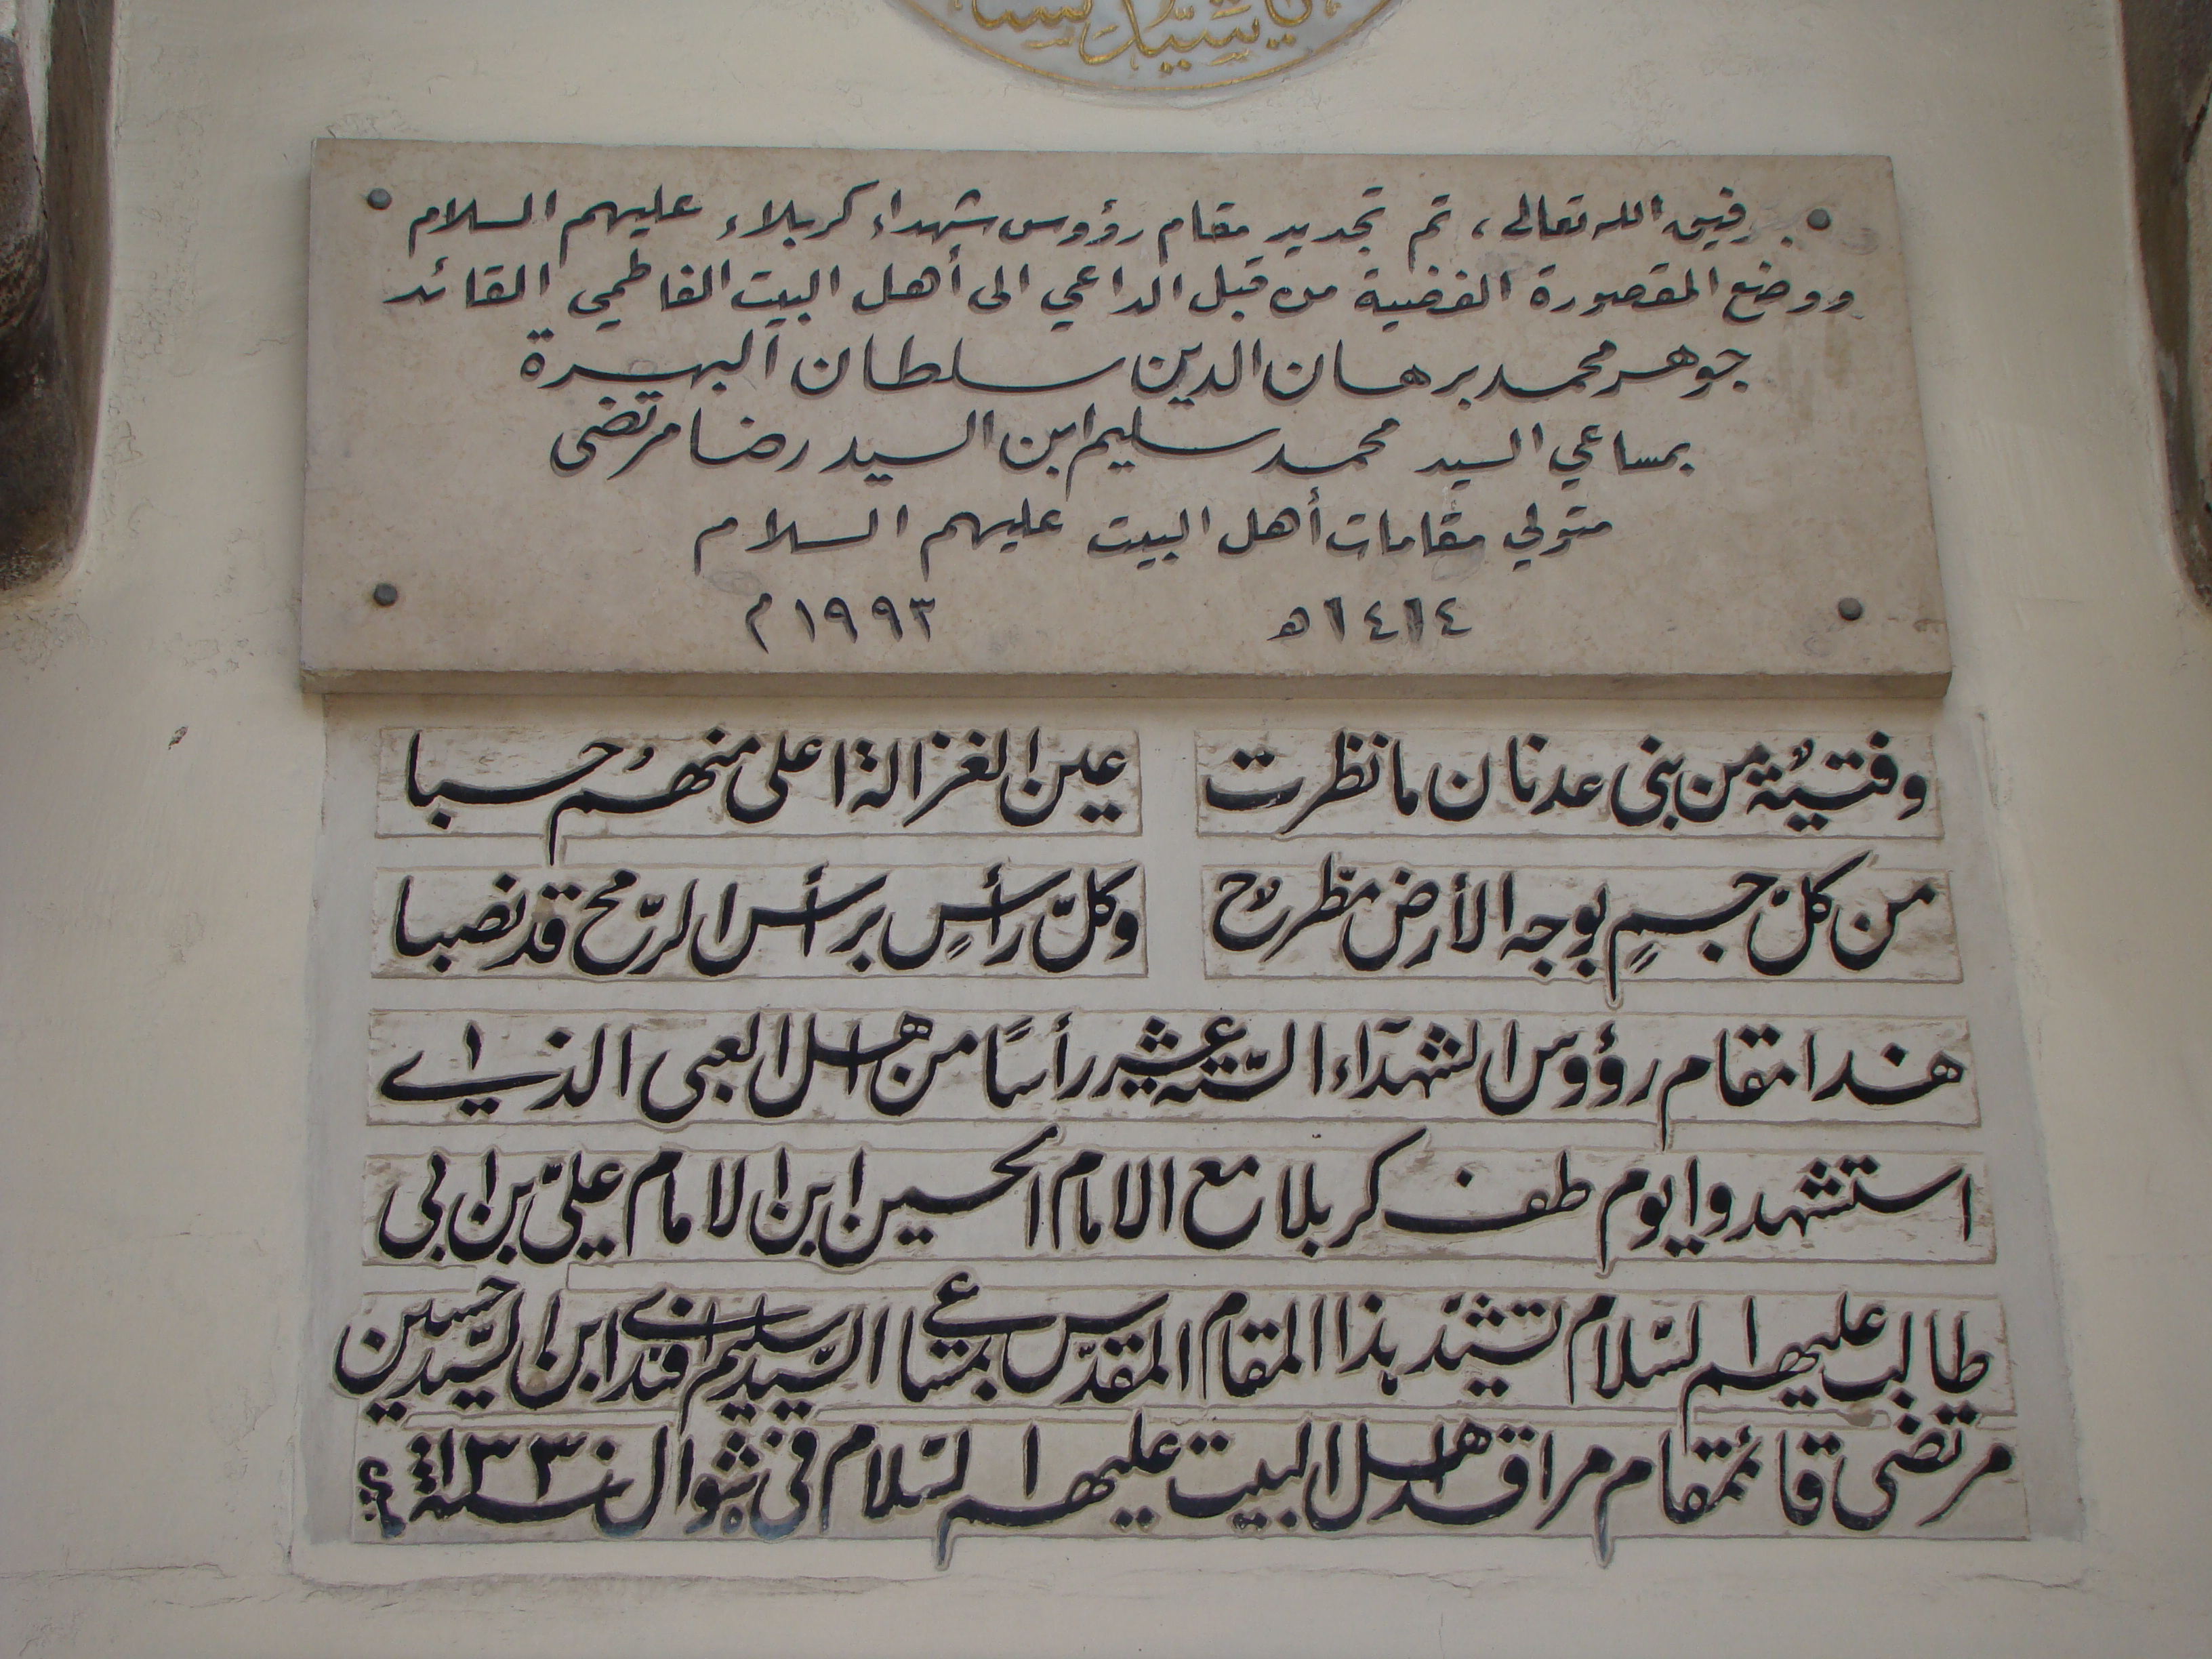 بتوفيق الله تعالى، تم تجديد مقام رؤوس شهداء كربلاء عليهم السلام
ووضع المقصورة الفضية من قبل الداعي الى أهل البيت الفاطمي القائد
جوهر محمد برهان الدين سلطان البهرة
بمساعي السيد محمد سليم ابن السيد رضا مرتضى
متولي مقامات أهل البيت عليهم السلام
١٤١٤ھ ١٩٩٣م
وفتيةٌ من بنى عدنان ما نظرت عين الغزالة اعلى منهُم حسبا
من كل جسمٍ بوجه الأرض مطّرحٌ وكلّ رأسٍ برأس الرّمح قد نصبا
هذا مقام رؤوس الشهدآء الستّة عشر رأسًا من هل العبى الذين
استشهدوا يوم طف كربلا مع الامام الحسين ابن الامام عليّ بن ابى
طالب عليهم السّلام تشيّد هذا المقام المقدّس بمساعي السّيد سليم افندي ابن السّيد حسين
مرتضى قائمقام مراقد اهل البيت عليهم السّلام فى شوال سنة ١٣٣٠